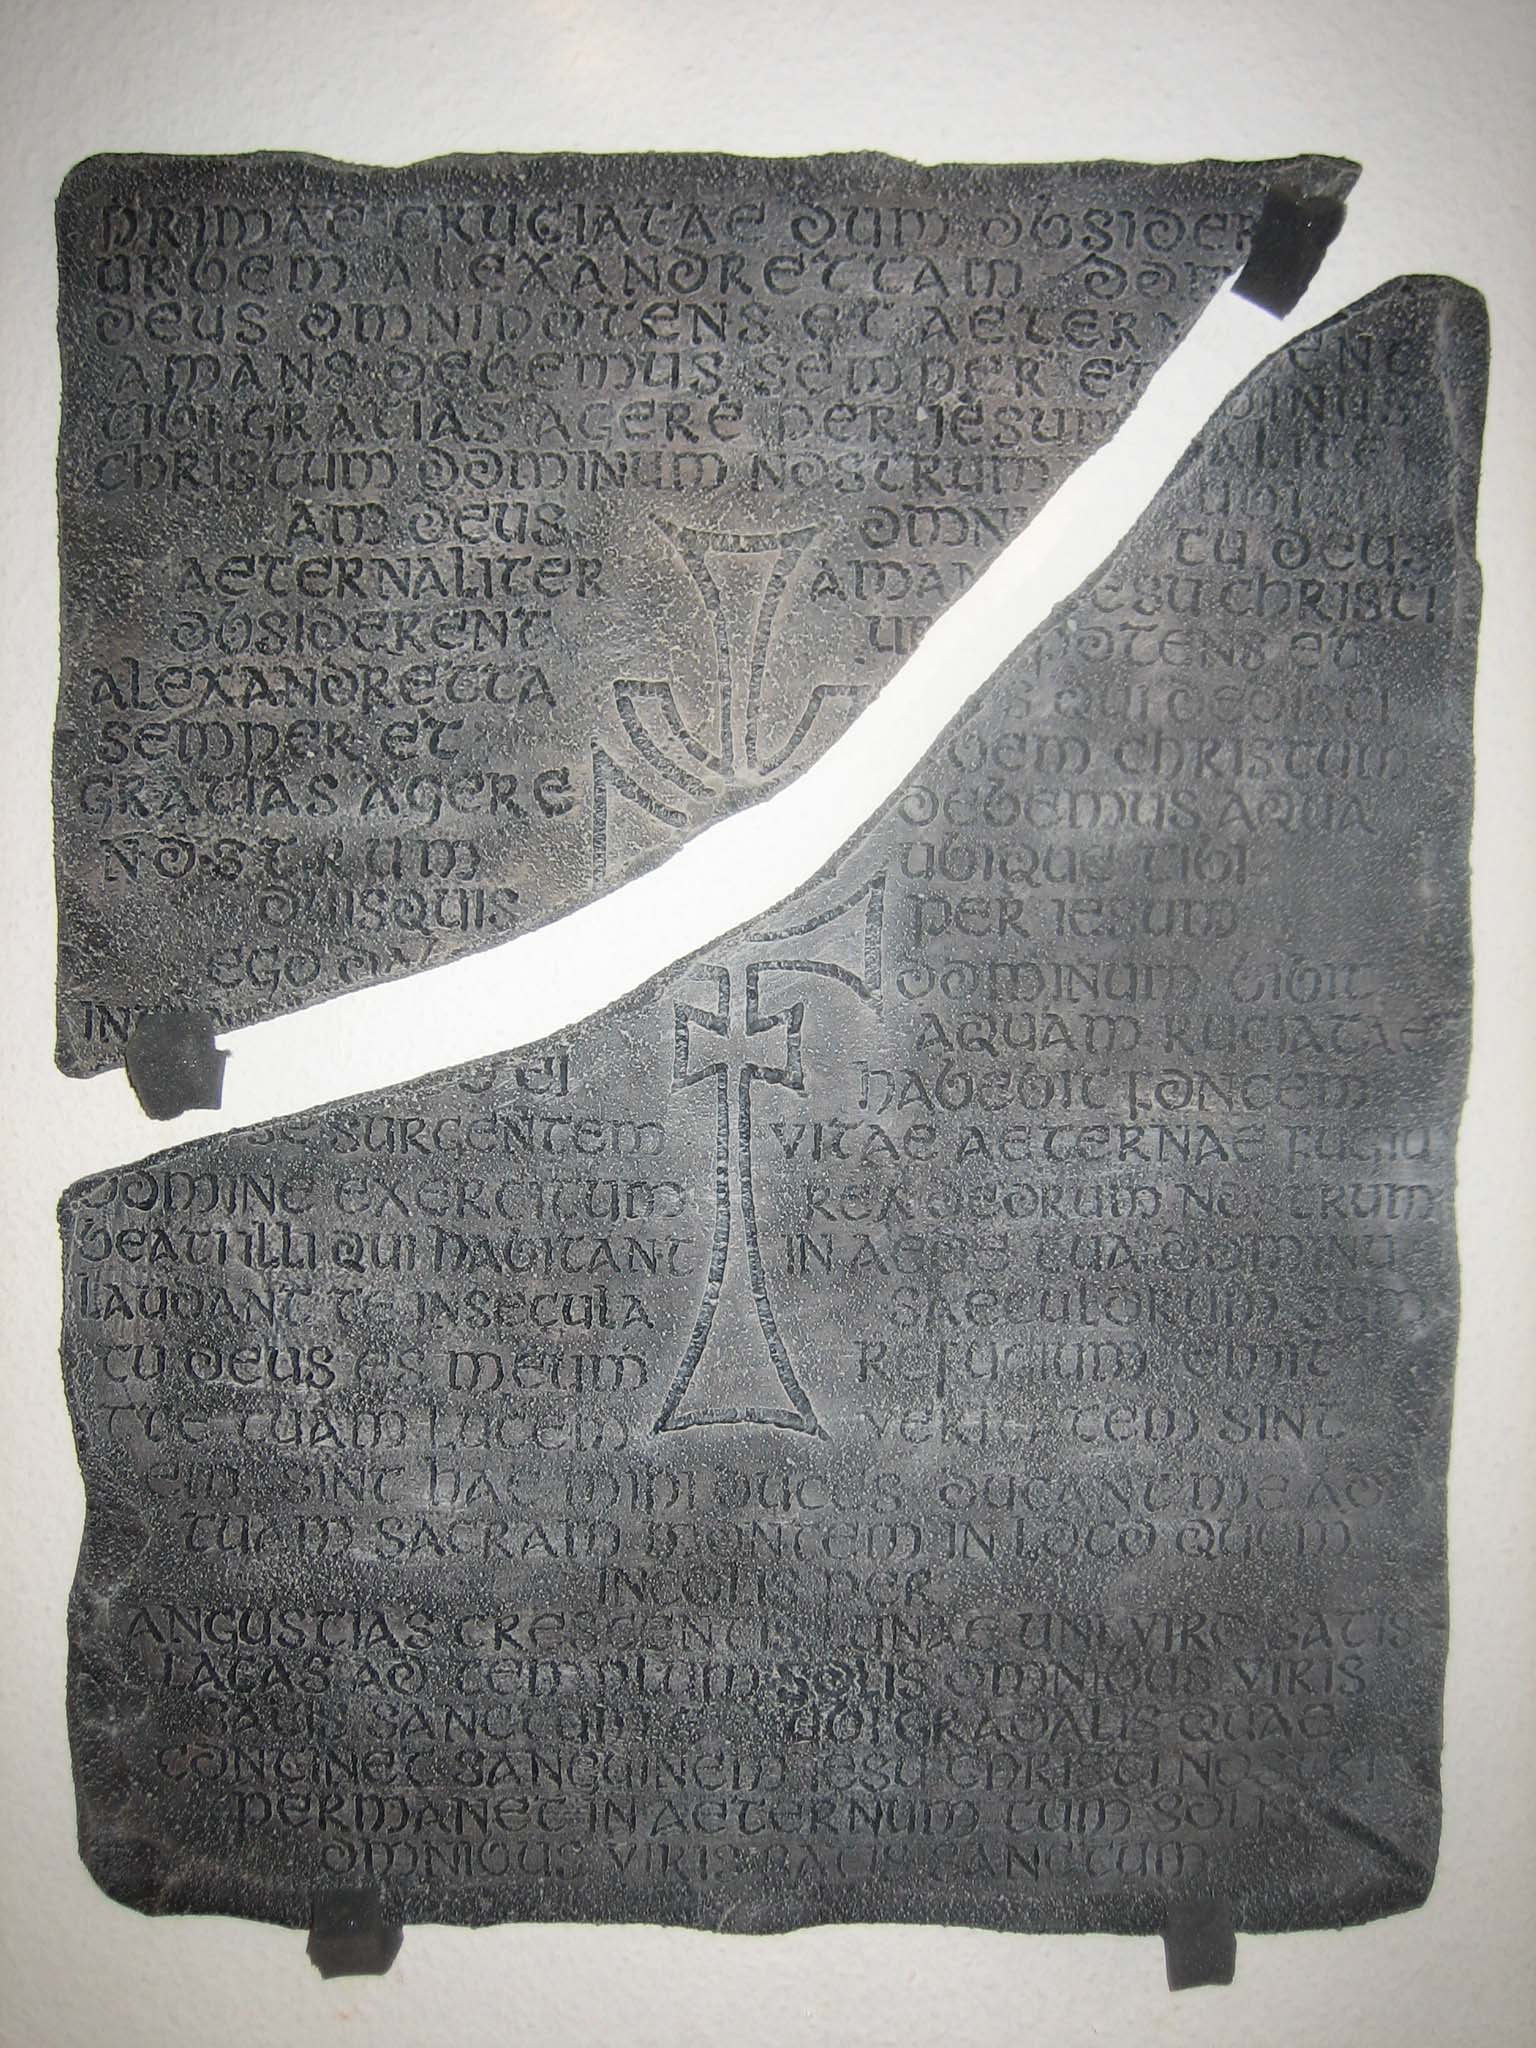 PRIMAE CRUCIATAE DUM OBSIDER
URBEM ALEXANDRETTAM DOM
DEUS OMNIPOTENS ET AETERN
AMANS DEBEMUS SEMPER ET ENT
TIBI GRATIAS AGERE PER JESUM OINUS
CHRISTUM DOMINUM NOSTRUM ALITER
AM DEUS OMNI UBIQUE
AETERNALITER AMAN TU DEUS
OBSIDERENT UR ESU CHRISTI
ALEXANDRETTA POTENS ET
SEMPER ET S QUI DEDISTI
GRATIAS AGERE BEM CHRISTUM
NOSTRUM DEBEMUS AQUA
QUISQUIS UBIQUE TIBI
EGO DA PER IESUM
IN DOMINUM BIBIT
AQUAM KRUCIATAE
O EI HABEBIT FONTEM
SE SURGENTEM VITAE AETERNAE FUGIU
DOMINE EXERCITUM REX DEORUM NOSTRUM
BEATI ILLI QUI HABITANT IN AEDE TUA DOMINU
LAUDANT TE IN SECULA SAECULORUM SUM
TU DEUS ES MEUM REFUGIUM EMIT
TUAM LUCEM TEM SINT
EM SINT HAE MIHI DUCES DUCANT ME AD
TUAM SACRAM MONTEM IN LOCO QUEM
INCOLIS PER
ANGUSTIAS CRESCENTIS LUNAE UNI VIRO SATIS
LATAS AD TEMPLUM SOLIS OMNIBUS VIRIS
SATIS SANCTUM UBI GRADALIS QUAE
CONTINET SANGUINEM IESU CHRISTI NOSTRI
PERMANET IN AETERNUM TUM SOLIS
OMNIBUS VIRIS SATIS SANCTUM